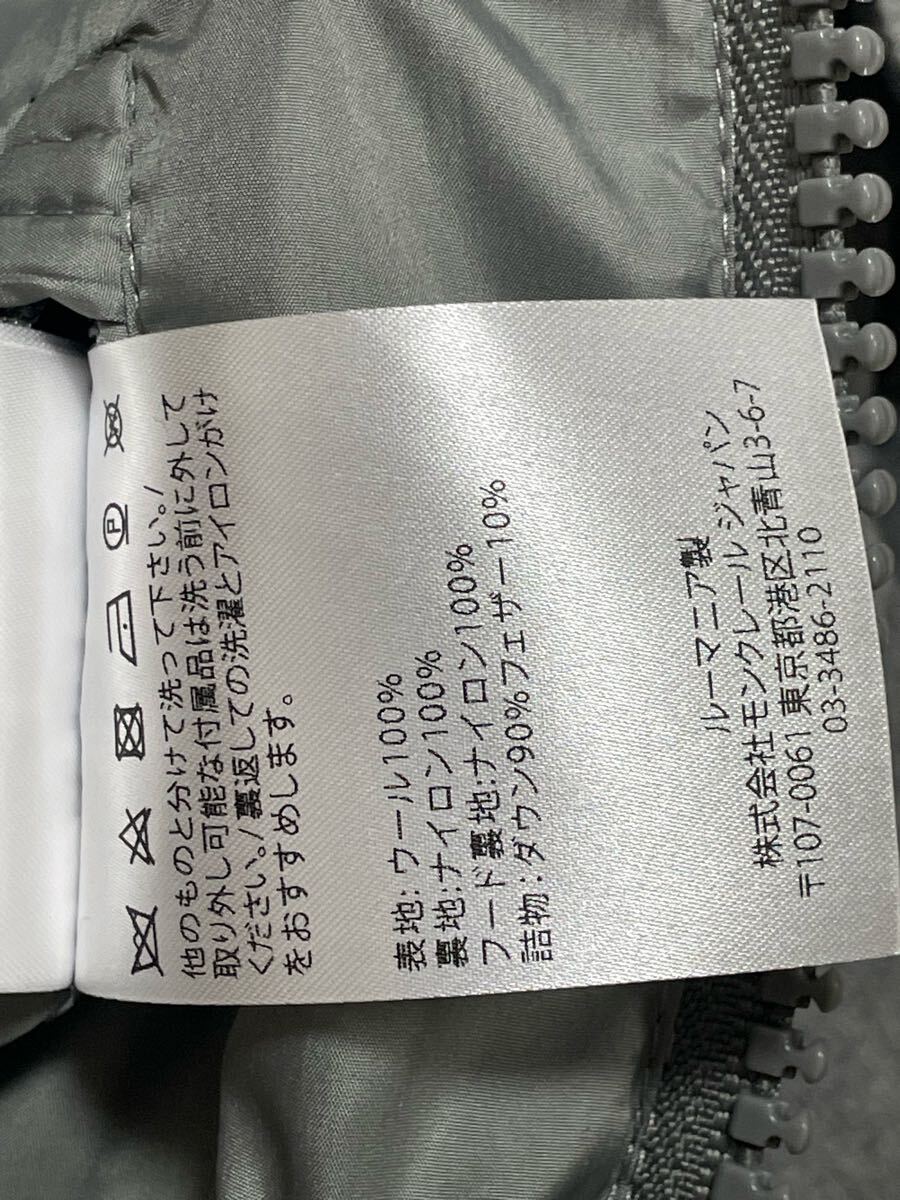 P
他のものと分けて洗って下さい。/
取り外し可能な付属品は洗う前に外して
ください。/裏返しての洗濯とアイロンがけ
をおすすめします。
表地:ウール100%
裏地:ナイロン100%
フード裏地:ナイロン100%
詰物:ダウン90%フェザー10%
ルーマニア製
株式会社モンクレール ジャパン
〒107-0061 東京都港区北青山3-6-7
03-3486-2110